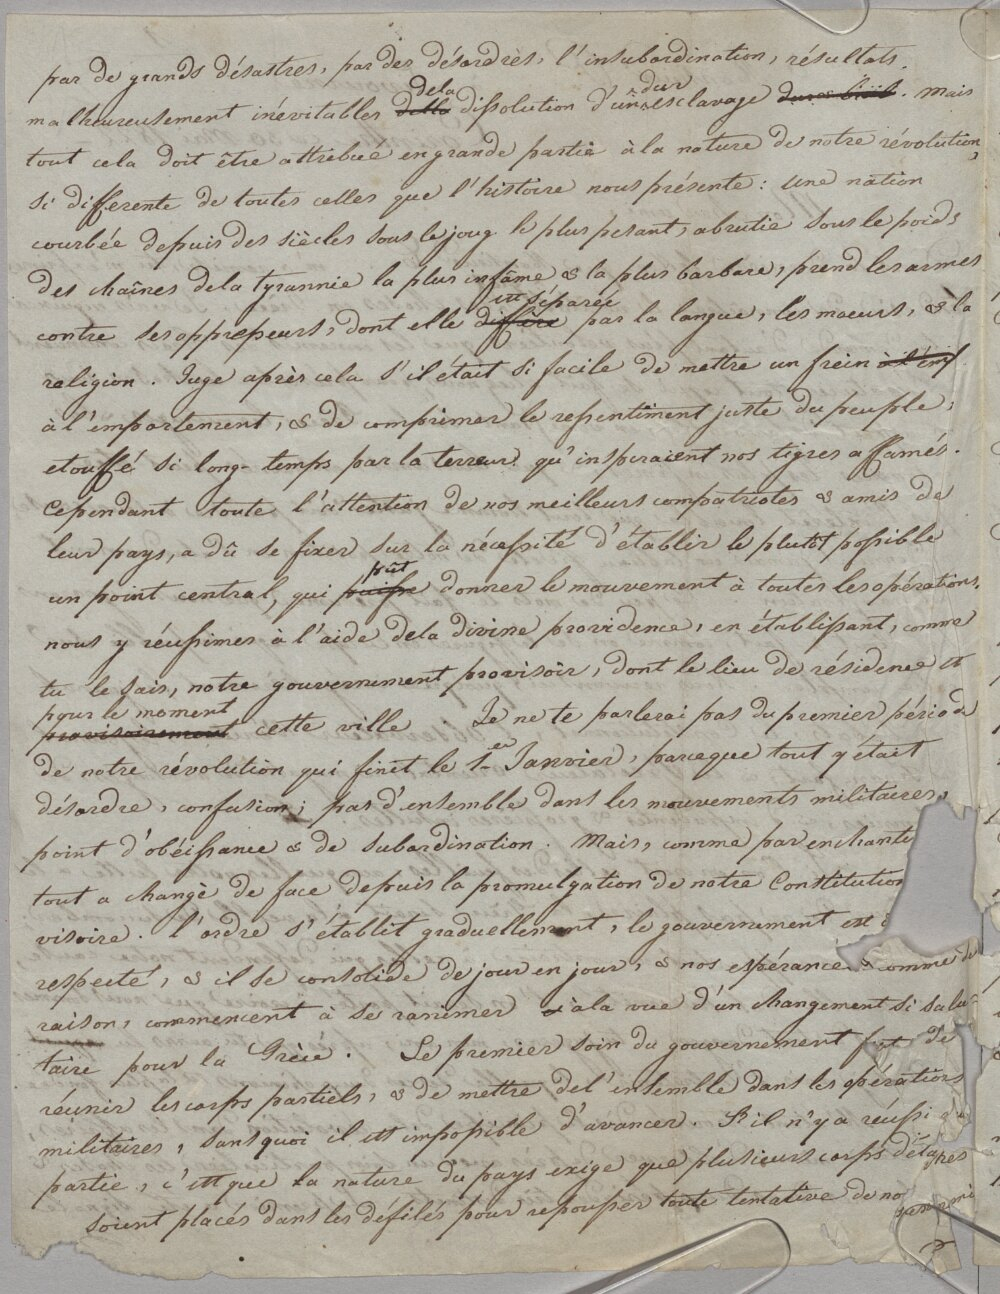 par de grands désastres, par des désordres, l'insubordination, résultats
dela dur
malheureusement inévitables della dissolution d'un esclavage. Mais
tout cela doit être attribué en grande partie à la nature de notre révolution,
si differente de toutes celles que l'histoire nous présente: Une nation
courbée depuis des siècles sous le joug le plus pesant, abrutie sous le poids
des chaînes dela tyrannie la plus infâme & la plus barbare, prend les armes
est séparée
contre ses oppresseurs, dont elle differe par la langue, les maeurs, & la
religion. Juge après cela s'il était si facile de mettre un frein
à l'emportement, & de comprimer le ressentiment juste du peuple,
etouffé si long-temps par la terreur qu'inspiraient nos tigres affamés.
Cépendant toute l'attention de nos meilleurs compatriotes & amis de
leur pays, a dû se fixer sur la nécessité d'établir le plutôt possible
pût
un point central, qui puisse donner le mouvement à toutes les opérations.
nous y réussimes à l'aide dela divine providence, en établissant, comme
tu le sais, notre gouvernement provisoir, dont le lieu de résidence est
pour le moment
provisoirement cette ville. Je ne te parlerai pas du premier périod
de notre révolution qui finit le 1er Janvier, parceque tout y était
désordre, confusion; pas d'ensemble dans les mouvements militaires,
point d'obéissance & de subordination. Mais, comme par enchante
tout a changé de face depuis la promulgation de notre Constitution
visoire. l'ordre s'établit graduellement, le gouvernement est
respecté, & il se consolide de jour en jour, & nos espérances comme de
raison, commencent à se ranimer à la vue d'un changement si salu-
taire pour la Grèce. Le premier soin du gouvernement fut de
réunir les corps partiels, & de mettre del'ensemble dans les opérations
militaires, sans quoi il est impossible d'avancer. S'il n'y a réussi qu'
partie, c'est que la nature du pays exige que plusieurs corps détapés
soient placés dans les défilés pour repousser toute tentative de no
ennemi